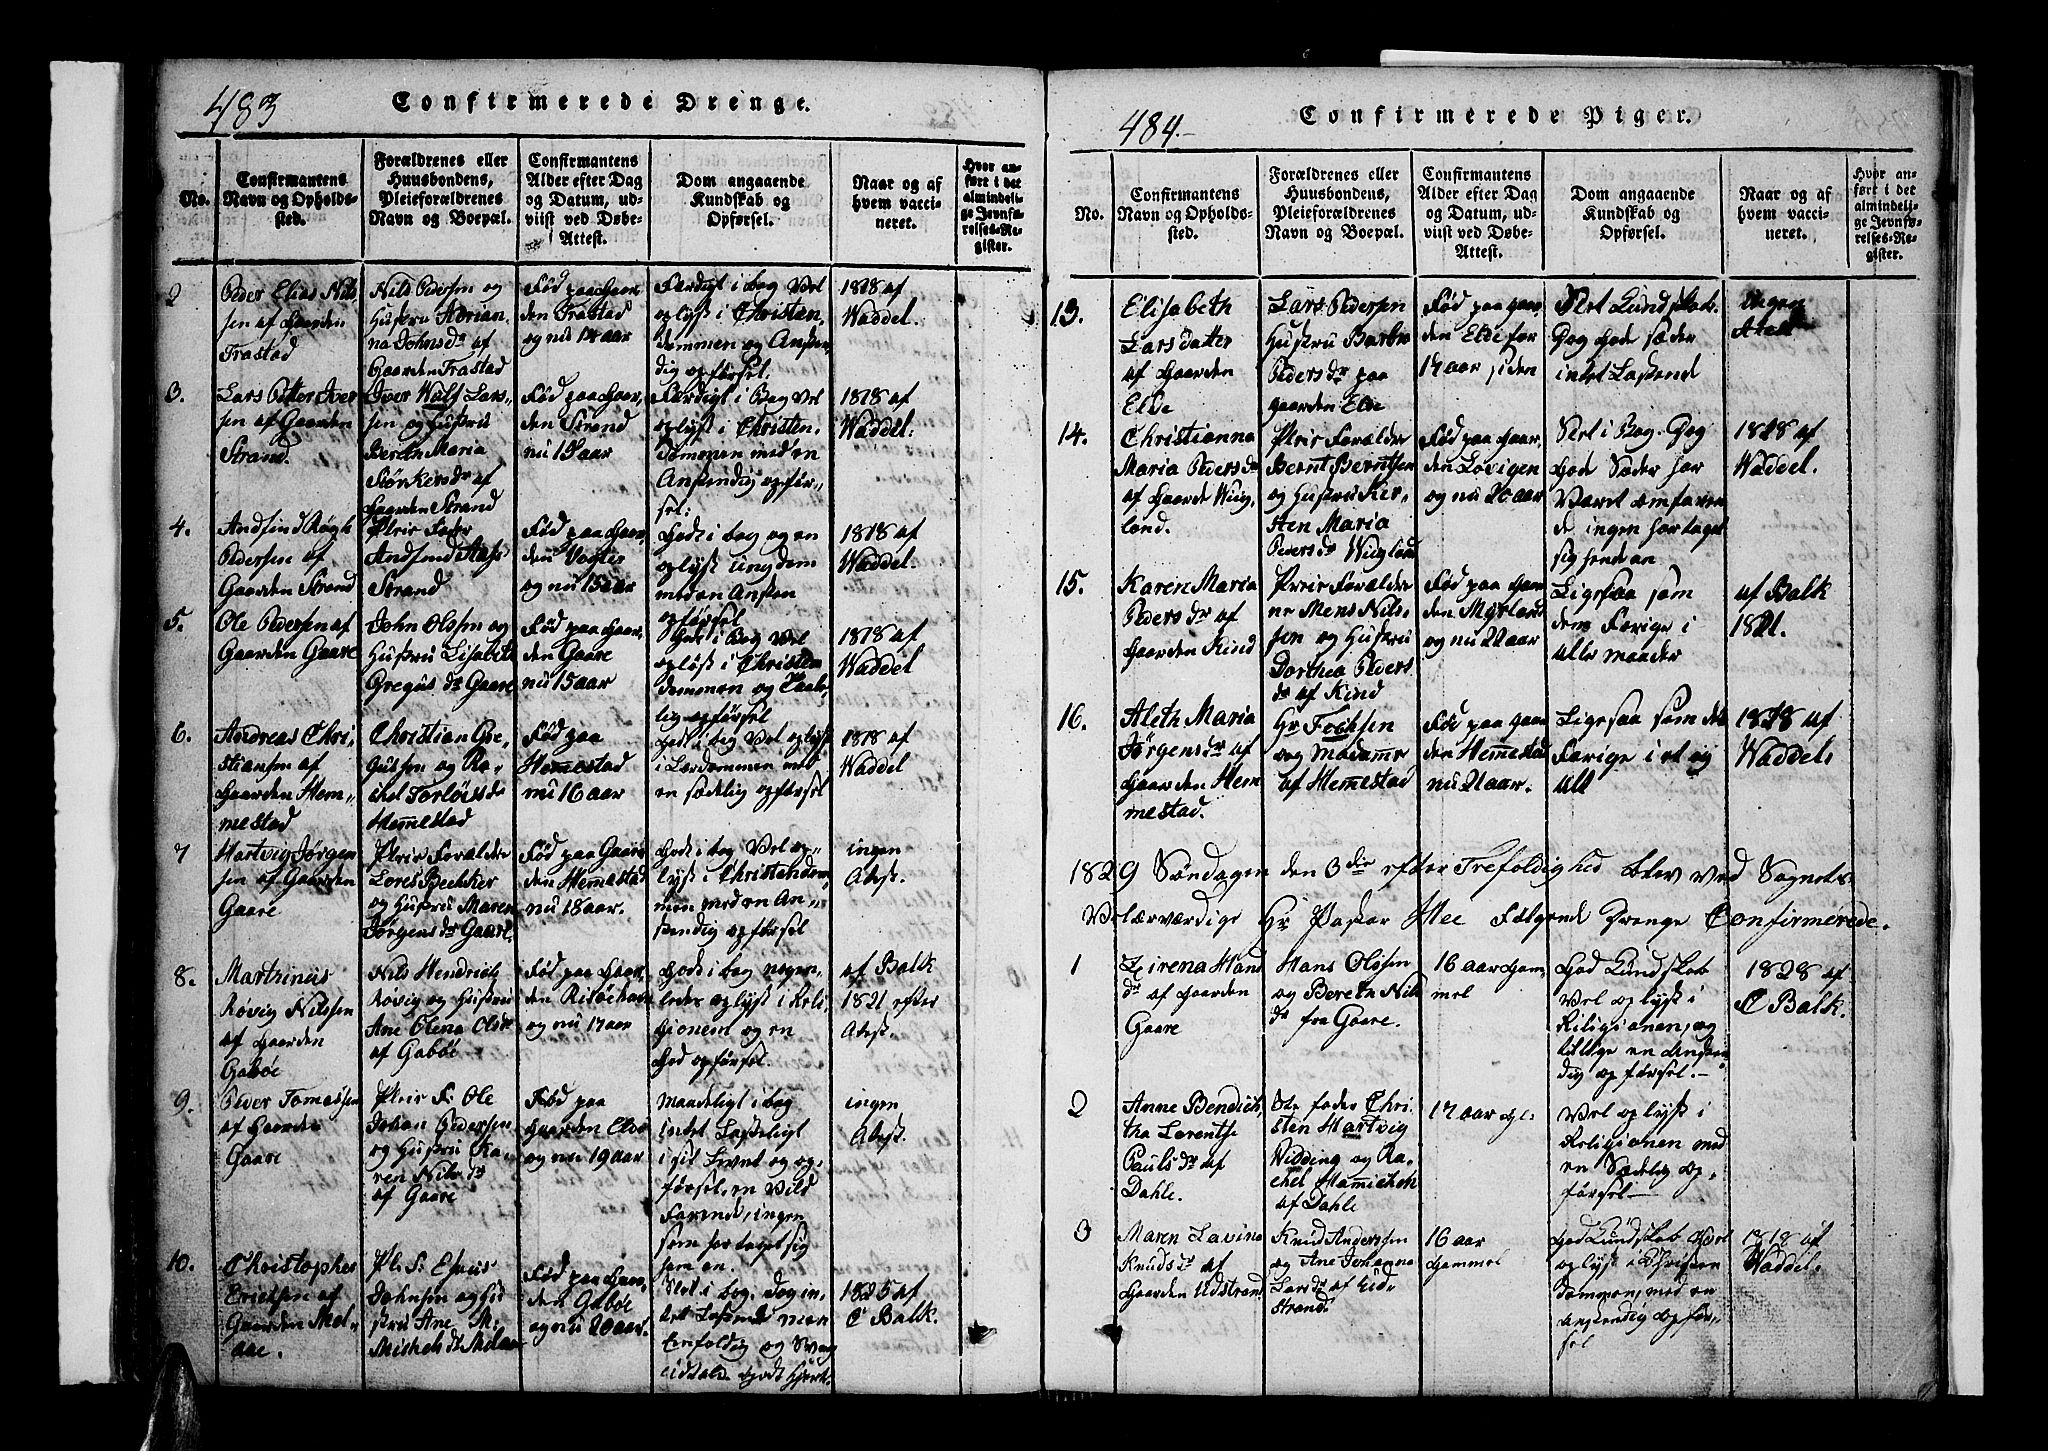 483
Confirmerede Drenge.
No.
Confirmantens
Navn og Opholds-
sted.
Forældrenes eller
Huusbondens,
Pleieforældrenes
Navn og Boepæl.
Confirmantens
Alder efter Dag
og Datum, ud-
viist ved Døbe-
Attest.
Dom angaaende
Kundskab og
Opførsel.
Naar og af
hvem vacci-
neret.
Hvor an-
ført i det
almindeli-
ge Jevnfø-
relses-Re-
gister.
2
Peder Elias Nils
sen af Gaarden
Trastad
Nils Pedersen og
Hustru Adrian-
na Johnsdr af
Gaarden Trastad
Fød paa Gaar
den Trastad
og nu 14 aar
Færdigt i bog Vel
oplyst i Christen
dommen og Ansten
dig opførsel.
1818 af
Waddel.
3.
Lars Petter Iver
sen af Gaarden
Strand.
Iver Wulf Lars-
sen og Hustru
Bereth Maria
Gaarden Strand
Fød paa Gaar,
den Strand
nu 15 aar
Færdigt i Bog Vel
oplyst i Christen,
dommen med en
Anstendig opfør-
sel.
1818 af
Waddel.
4.
Pedersen af
Gaarden Strand
Pleie Fader
Strand
Fød paa Gaar,
den
og nu 15 aar
Godt i bog og en
oplyst ungdom
med en Ansten
opførsel
1818 af
Waddel.
5.
Ole Pedersen af
Gaarden Gaare
John Olssen og
Hustru Lisabeth
Gregus dr Gaare
Fød paa Gaar,
den Gaare
nu 15 aar
Godt i Bog Vel
oplyst i Christen
dommen og
lig opførsel
1818 af
Waddel
6.
Andreas Chri-
stiansen af
Gaarden Hem-
mestad
Christian Gre-
gussen og Ra-
chel Torløis dr
Hemestad
Fød paa
Hemestad
nu 16 aar
Godt i bog Vel oplyst
i Lærdommen med
en sædelig opførsel
1818 af
Waddel
7
Hartvig Jørgen
sen af Gaarden
Gaare
Pleie Forældre
Lores Bechker
og Hustru Maren
Jørgens dr Gaare.
Fød paa Gaar
den Hemestad
nu 18 aar.
Godt i bog Vel op-
lyst i Christendom,
men med en An-
stendig opførsel
ingen
Atest.
8.
Martinus
Røvig Nilssen
af Gaarden
Gabøe
Nils Hendrich
Røvig og Hustru
Ane Olena Olsdr
af Gabøe
Fød paa Gaar
den Risøehavn
og nu 17 aar
Godt i bog nogen-
ledes oplyst i Reli
gionen og en
God opførsel.
af Balk
1821 efter
Atest.
9.
Peder Tomassen
af Gaarden
Gaare
Pleie F: Ole
Johan Pedersen
og Hustru Ka-
ren Nils dr
af Gaare
Fød paa
Gaarden Elde
og nu 19 aar
Maadeligt i bog
intet Lasteligt
i sit Levnet og op-
førsel, en Vild
Farende, ingen
som har taget sig
ham an.
ingen
Atest.
10.
Christopher
Ericksen af
Gaarden Mel-
aae.
Pl: F: Esaias
Johnsen og Hu
stru Ane M:
Michels dr Melaae
Fød paa Gaar,
den Gabøe
og nu 20 aar.
Slet i bog, Dog in-
tet Lastende men
Enfoldig og Svag
1825 af
C Balk.
484.-
Confirmerede Piger.
No.
Confirmantens
Navn og Opholds-
sted.
Forældrenes eller
Huusbondens,
Pleieforældrenes
Navn og Boepæl.
Confirmantens
Alder efter Dag
og Datum, ud-
viist ved Døbe-
Attest.
Dom angaaende
Kundskab og
Opførsel.
Naar og af
hvem vacci-
neret.
Hvor an-
ført i det
almindeli-
ge Jevnfø-
relses-Re-
gister.
13.
Elisabeth
Lars datter
af Gaarden
Elde
Lars Pedersen
Hustru Barbro
Peders dr paa
gaarden Elde
Fød paa gaar
den Elde for
17 aar siden
Slet Kundskab.
Dog Gode sæder
intet Lastend
ingen
Atest
14.
Christianna
Maria Peders dr
af Gaarde Wug
land.
Pleie Forældre
Bernt Berntsen
og Hustru Kir-
sten Maria
Peders dr Wugland
Fød paa Gaar,
den Lovigen
og nu 20 aar
Slet i Bog. Dog
Gode Sæder har
Været omfaren
de ingen har taget
sig hende an
1818 af
Waddel.
15.
Karen Maria
Peders dr af
Gaarden Kind
Pleie Forældre
ne Mons Nils-
sen og Hustru
Dorthea Peders
dr af Kind
Fød paa Gaar
den Myrland
og nu 22 aar
Ligesaa som
den Forige i
alle maader
af Balk
1821.
16.
Aleth Maria
Jørgens dr af
Gaarden Hem
mestad.
Hr Fochsen
og Madamme
af Hemestad
Fød paa Gaar
den Hemestad
nu 21 aar.
Ligesaa som den
Forige i et og
alt
1818 af
Waddel.
1829 Søndagen den 3die efter Trefoldighed blev ved Sognets
Velærværdige Hr Pastor Mee Følgend Drenge Confirmerede.
1
Eirena Hans
dr af Gaarden
Gaare
Hans Olssen
og Bereth Nils
dr fra Gaare.
16 aar Gam-
mel
God Kundskab
Vel oplyst i
Religionen, og
tillige en Ansten
dig opførsel.-
1828 af
C Balk.
2
Anne Bendich
tha Lorentse
Pauls dr af
Dahle.
Ple fader Chri-
sten Hartvig
Hidding og Ra-
chel
af Dahle
17 aar gl.
Vel oplyst i
Religionen med
en Sædelig op-
førsel-
3
Maren Lavina
Knuds dr af
Gaarden Udstrand
Knud Anderssen
og Ane Johanna
Lars dr af Ud-
strand.
16 aar
Gammel
God Kundskab Vel
oplyst i Christen
dommen, med en
anstendig opfør-
sel
1818 af
Waddel.